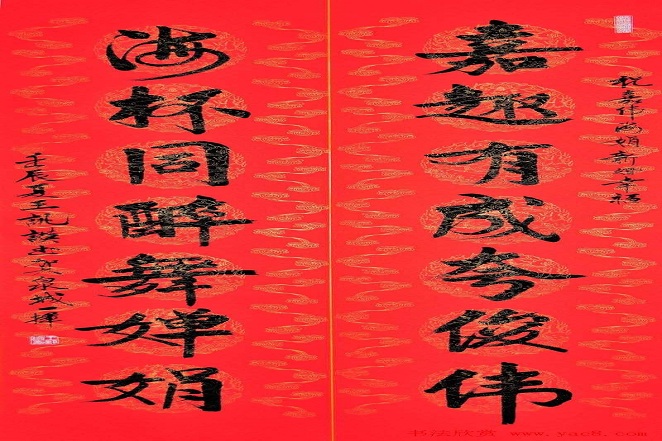 祝嘉伟海娟新婚幸福
嘉趣有成夸俊伟
海杯同醉舞婵娟
壬辰夏王
书法欣赏 www.yac8.com